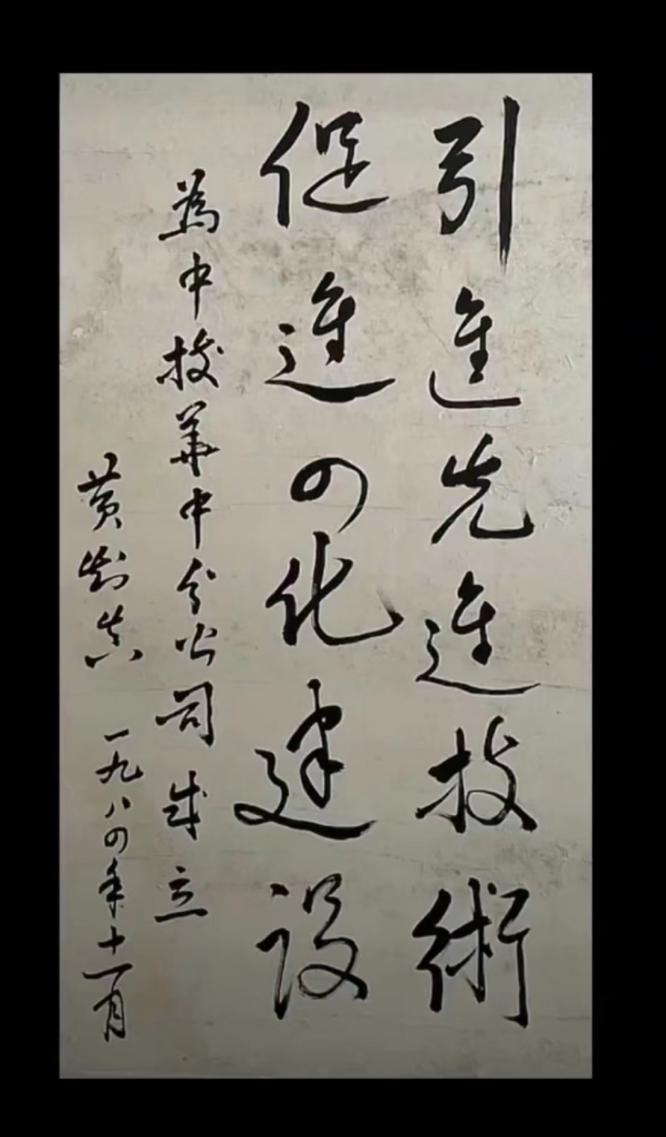 引進先進技術
促進四化建设
為中技華中分公司成立
黄知真 一九八四年十一月